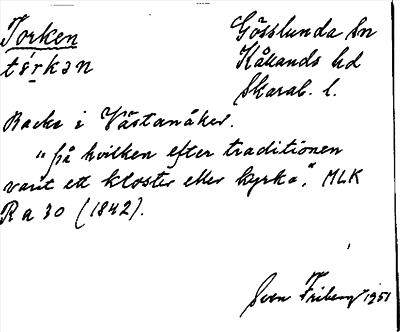 Torken
Gösslunda sn
tårkan
Kållands hd
Skarab. l.
Backe i Västanåker.
"på hvilken efter traditionen
varit ett kloster eller kyrka". MLK
Ra 30 (1842).
Sven Friberg 1951